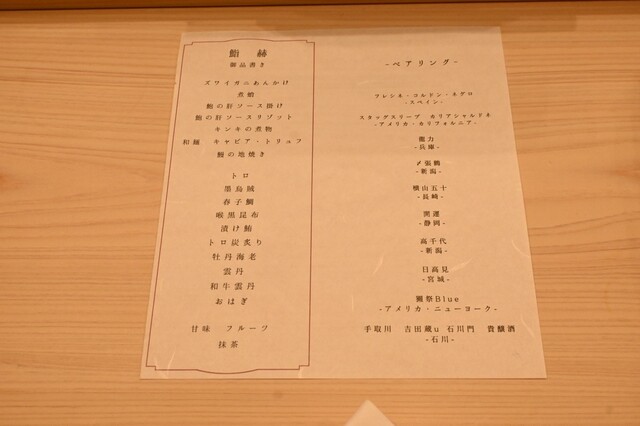 鮨 赫
御品書き
ズワイガニあんかけ
煮蛤
鮑の肝ソース掛け
鮑の肝ソースリゾット
キンキの煮物
和麺 キャビア・トリュフ
鰻の地焼き
トロ
墨烏賊
春子鯛
喉黒昆布
漬け鮪
トロ炭炙り
牡丹海老
雲丹
和牛雲丹
おはぎ
甘味 フルーツ
抹茶
-ペアリング-
フレシネ・コルドン・ネグロ
-スペイン-
スタッグスリープ カリアシャルドネ
-アメリカ・カリフォルニア-
龍力
-兵庫-
〆張鶴
-新潟-
横山五十
-長崎-
開運
-静岡-
高千代
-新潟-
日高見
-宮城-
獺祭Blue
-アメリカ・ニューヨーク-
手取川 吉田蔵u 石川門 貴醸酒
-石川-